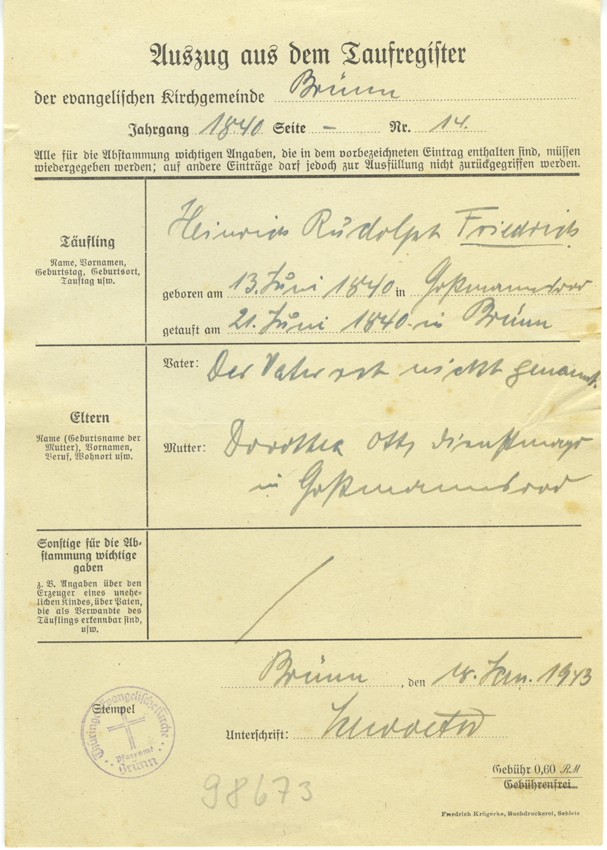 Auszug aus dem Taufregister
der evangelischen Kirchgemeinde Brünn
Jahrgang 1840 Seite – Nr. 14.
Alle für die Abstammung wichtigen Angaben, die in dem vorbezeichneten Eintrag enthalten sind, müssen
wiedergegeben werden; auf andere Einträge darf jedoch zur Ausfüllung nicht zurückgegriffen werden.
Täufling
Name, Vornamen,
Geburtstag, Geburtsort,
Tauftag usw.
Heinrich Rudolph Friedrich
geboren am 13. Juni 1840 in Goßmannsrod
getauft am 21. Juni 1840 in Brünn
Eltern
Name (Geburtsname der
Mutter), Vornamen,
Beruf, Wohnort usw.
Vater: Der Vater ist nicht genannt.
Mutter: Dorothea Otto Dienstmagd
in Goßmannsrod
Sonstige für die Ab-
stammung wichtige
gaben
z. B. Angaben über den
Erzeuger eines unehe-
lichen Kindes, über Paten,
die als Verwandte des
Täuflings erkennbar sind,
usw.
Brünn, den 18. Jan. 1943
Stempel
Thüringer Evangelische Kirche
Pfarramt
Brünn
Unterschrift:
Gebühr 0,60 RM
Gebührenfrei
98673
Friedrich Krügerke, Buchdruckerei, Schleiz